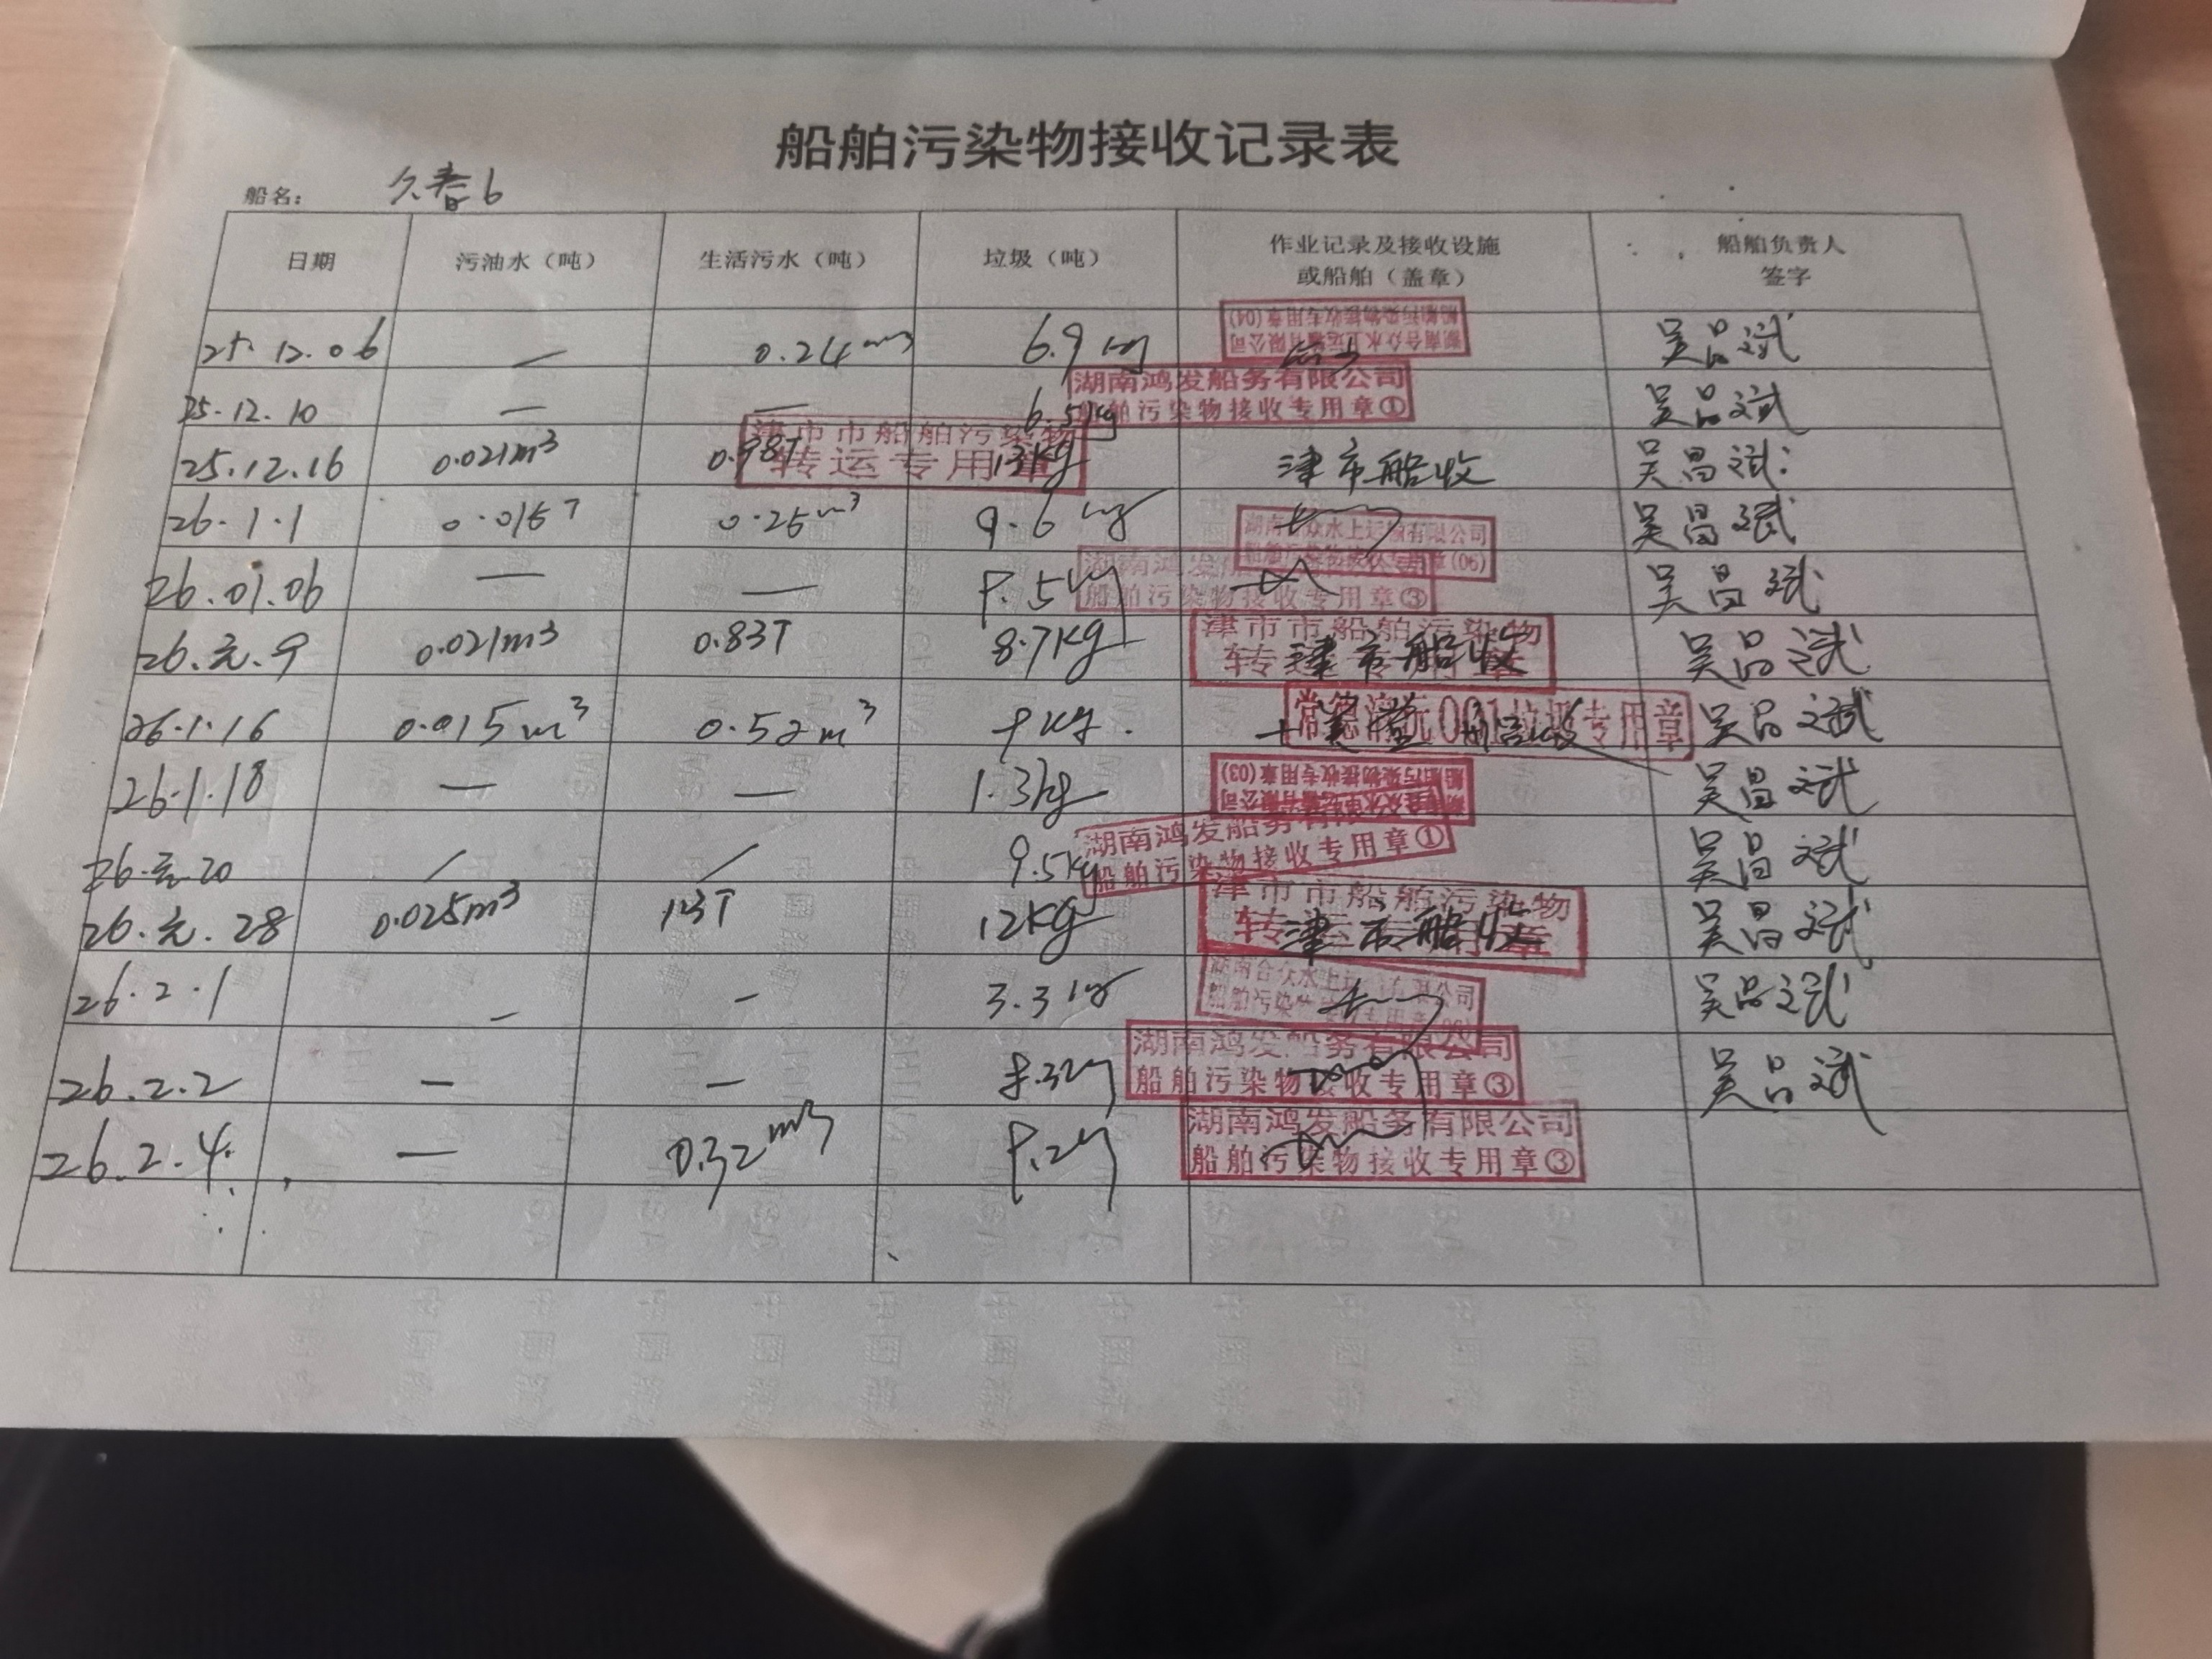 船舶污染物接收记录表
船名： 久春6
日期 污油水（吨） 生活污水（吨） 垃圾（吨） 作业记录及接收设施或船舶（盖章） 船舶负责人签字
25.12.06 — 0.24m3 6.9kg 湖南合众水上运输有限公司 船舶污染物接收专用章(04) 吴昌斌
25.12.10 — — 6.5kg 湖南鸿发船务有限公司 船舶污染物接收专用章① 吴昌斌
25.12.16 0.021m3 0.98T 13kg 津市市船舶污染物转运专用章 津市船收 吴昌斌
26.1.1 0.015T 0.25m3 9.6kg 湖南合众水上运输有限公司 船舶污染物接收专用章(06) 吴昌斌
26.01.06 — — 8.5kg 湖南鸿发船务有限公司 船舶污染物接收专用章③ 吴昌斌
26.元.9 0.021m3 0.83T 8.7kg 津市市船舶污染物转运专用章 津市船收 吴昌斌
26.1.16 0.015m3 0.52m3 9kg. 专用章 吴昌斌
26.1.18 — — 1.3kg 湖南合众水上运输有限公司 船舶污染物接收专用章(03) 吴昌斌
26.元.20 / / 9.5kg 湖南鸿发船务有限公司 船舶污染物接收专用章① 吴昌斌
26.元.28 0.025m3 1.13T 12kg 津市市船舶污染物转运专用章 津市船收 吴昌斌
26.2.1 — — 3.3kg 湖南合众水上运输有限公司 船舶污染物接收专用章 吴昌斌
26.2.2 — — 8.3kg 湖南鸿发船务有限公司 船舶污染物接收专用章③ 吴昌斌
26.2.4 — 0.32m3 8.2kg 湖南鸿发船务有限公司 船舶污染物接收专用章③